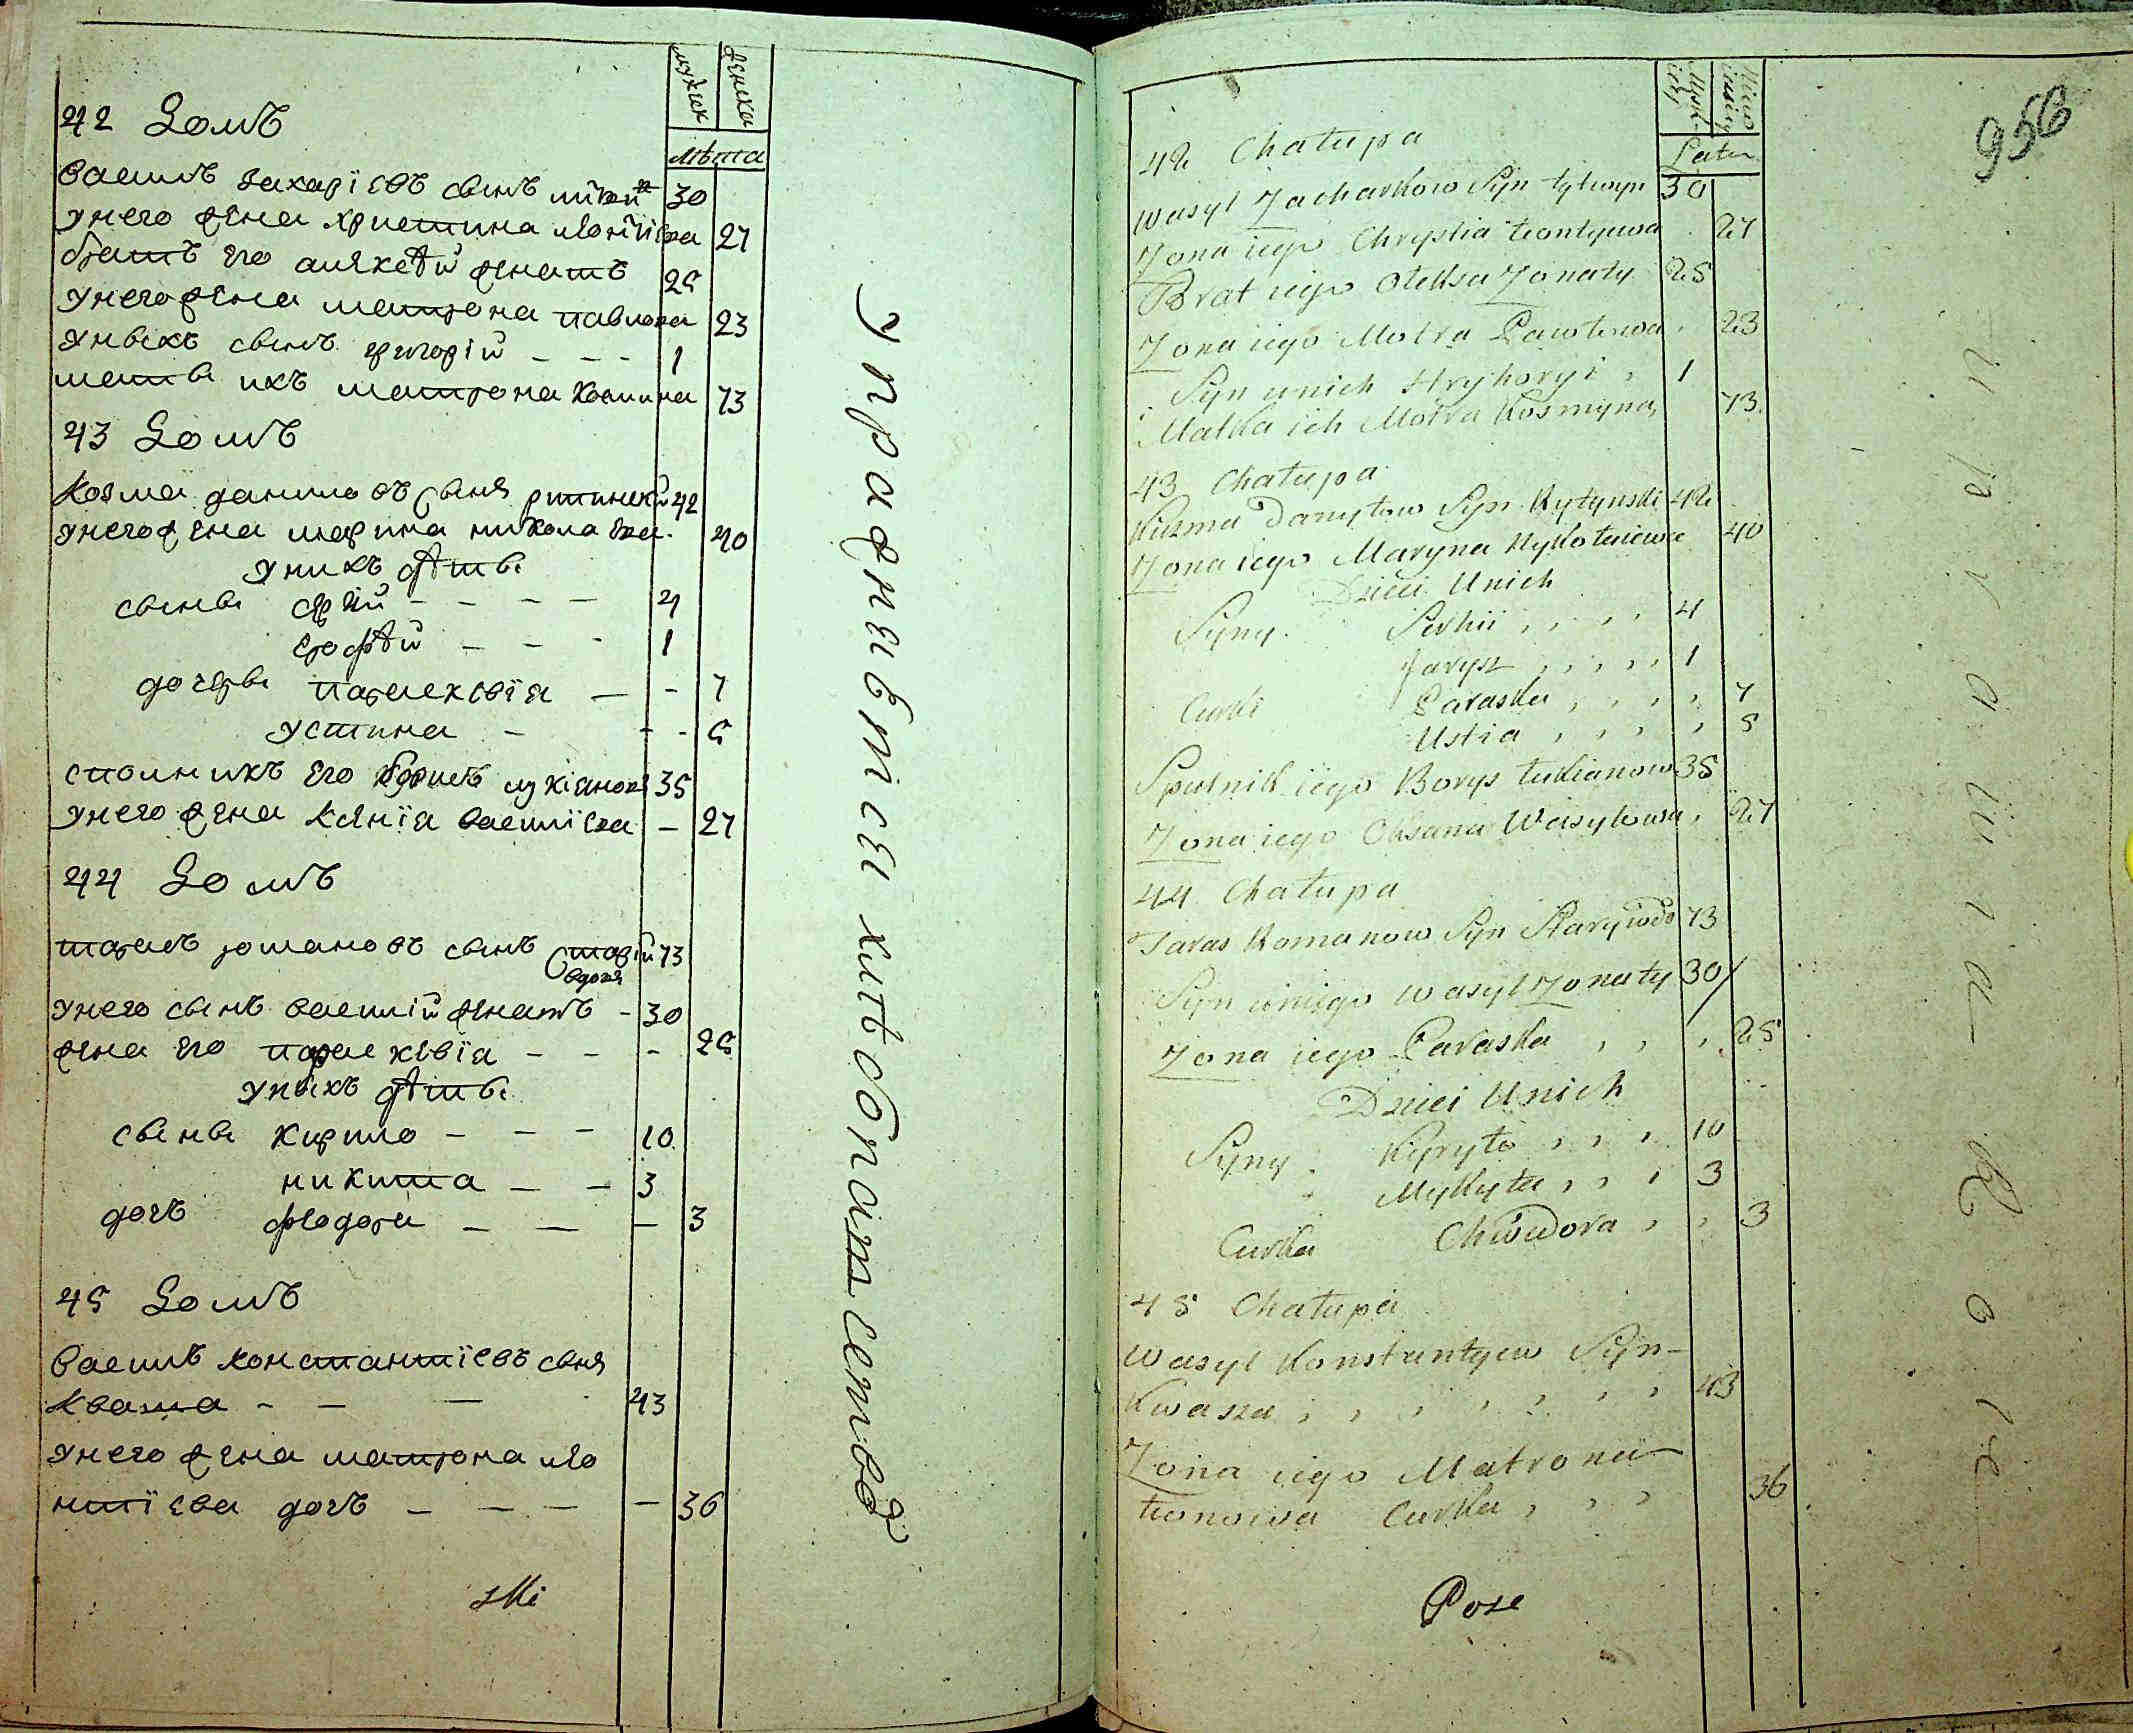 мужск
женска
лѣта
42 Домъ
Василь Захаріевъ сынъ 30
У него жена Христина 27
братъ его Алексѣй женатъ 25
У него жена Матрона Павлова 23
У ныхъ сынъ Григорій - - - 1
мать ихъ Матрона Космина 73
43 Домъ
Козма Данилювъ сынъ 42
У него жена Марина Николаева 40
У нихъ дѣты
сыны Сергій - - - - 4
Ерофѣй - - - 1
дочеры Параскевія — - 7
Устина - - - 5
спольникъ его Борисъ Лукіяновъ 35
У него жена Ксенія Василіева — 27
44 Домъ
Тарасъ Романовъ сынъ Старій 73
вдовя
У него сынъ Василій женатъ - 30
жена его Параскевія - - - 25
У ныхъ дѣты
сыны Кирило - - - 10
Никита - - 3
дочъ Феодора — — — 3
45 Домъ
Василь Константіевъ сынъ
Кваша - - — 43
У него жена Матрона Лео
нтіева дочъ - — — — 36
Упражнѣвтся хлѣбопашествов
95б
Męsk-
iey
Lata
42 Chałupa
Wasyl Zacharkow Syn Tytwyn 30
Zona iego Chrystia Leontyowa 27
Brat iego Oleksa Zonaty 25
Zona iego Motra Pawłowa 23
Syn unich Hryhoryi 1
Matka ich Motra Kosmyna 73
43 Chałupa
Kuzma Danyłow Syn Rytynski 42
Zona iego Maryna Mykołaiewa 40
Dzieci Unich
Syny Serhii 4
Jarysz 1
Curki Paraska 7
Ustia 5
Spulnik iego Borys Łukianow 35
Zona iego Oksana Wasylowa 27
44 Chałupa
Taras Romanow Syn Stary wdo 73
Syn uniego Wasyl Zonaty 30/
Zona iego Paraska 25
Dzieci Unich
Syny Kyryło 10
Mykyta 3
Curka Chwedora 3
45 Chałupa
Wasyl Konstantyew Syn-
Kwasza 43
Zona iego Matrona
Leonowa Curka 36
Pose
uprawuia Role